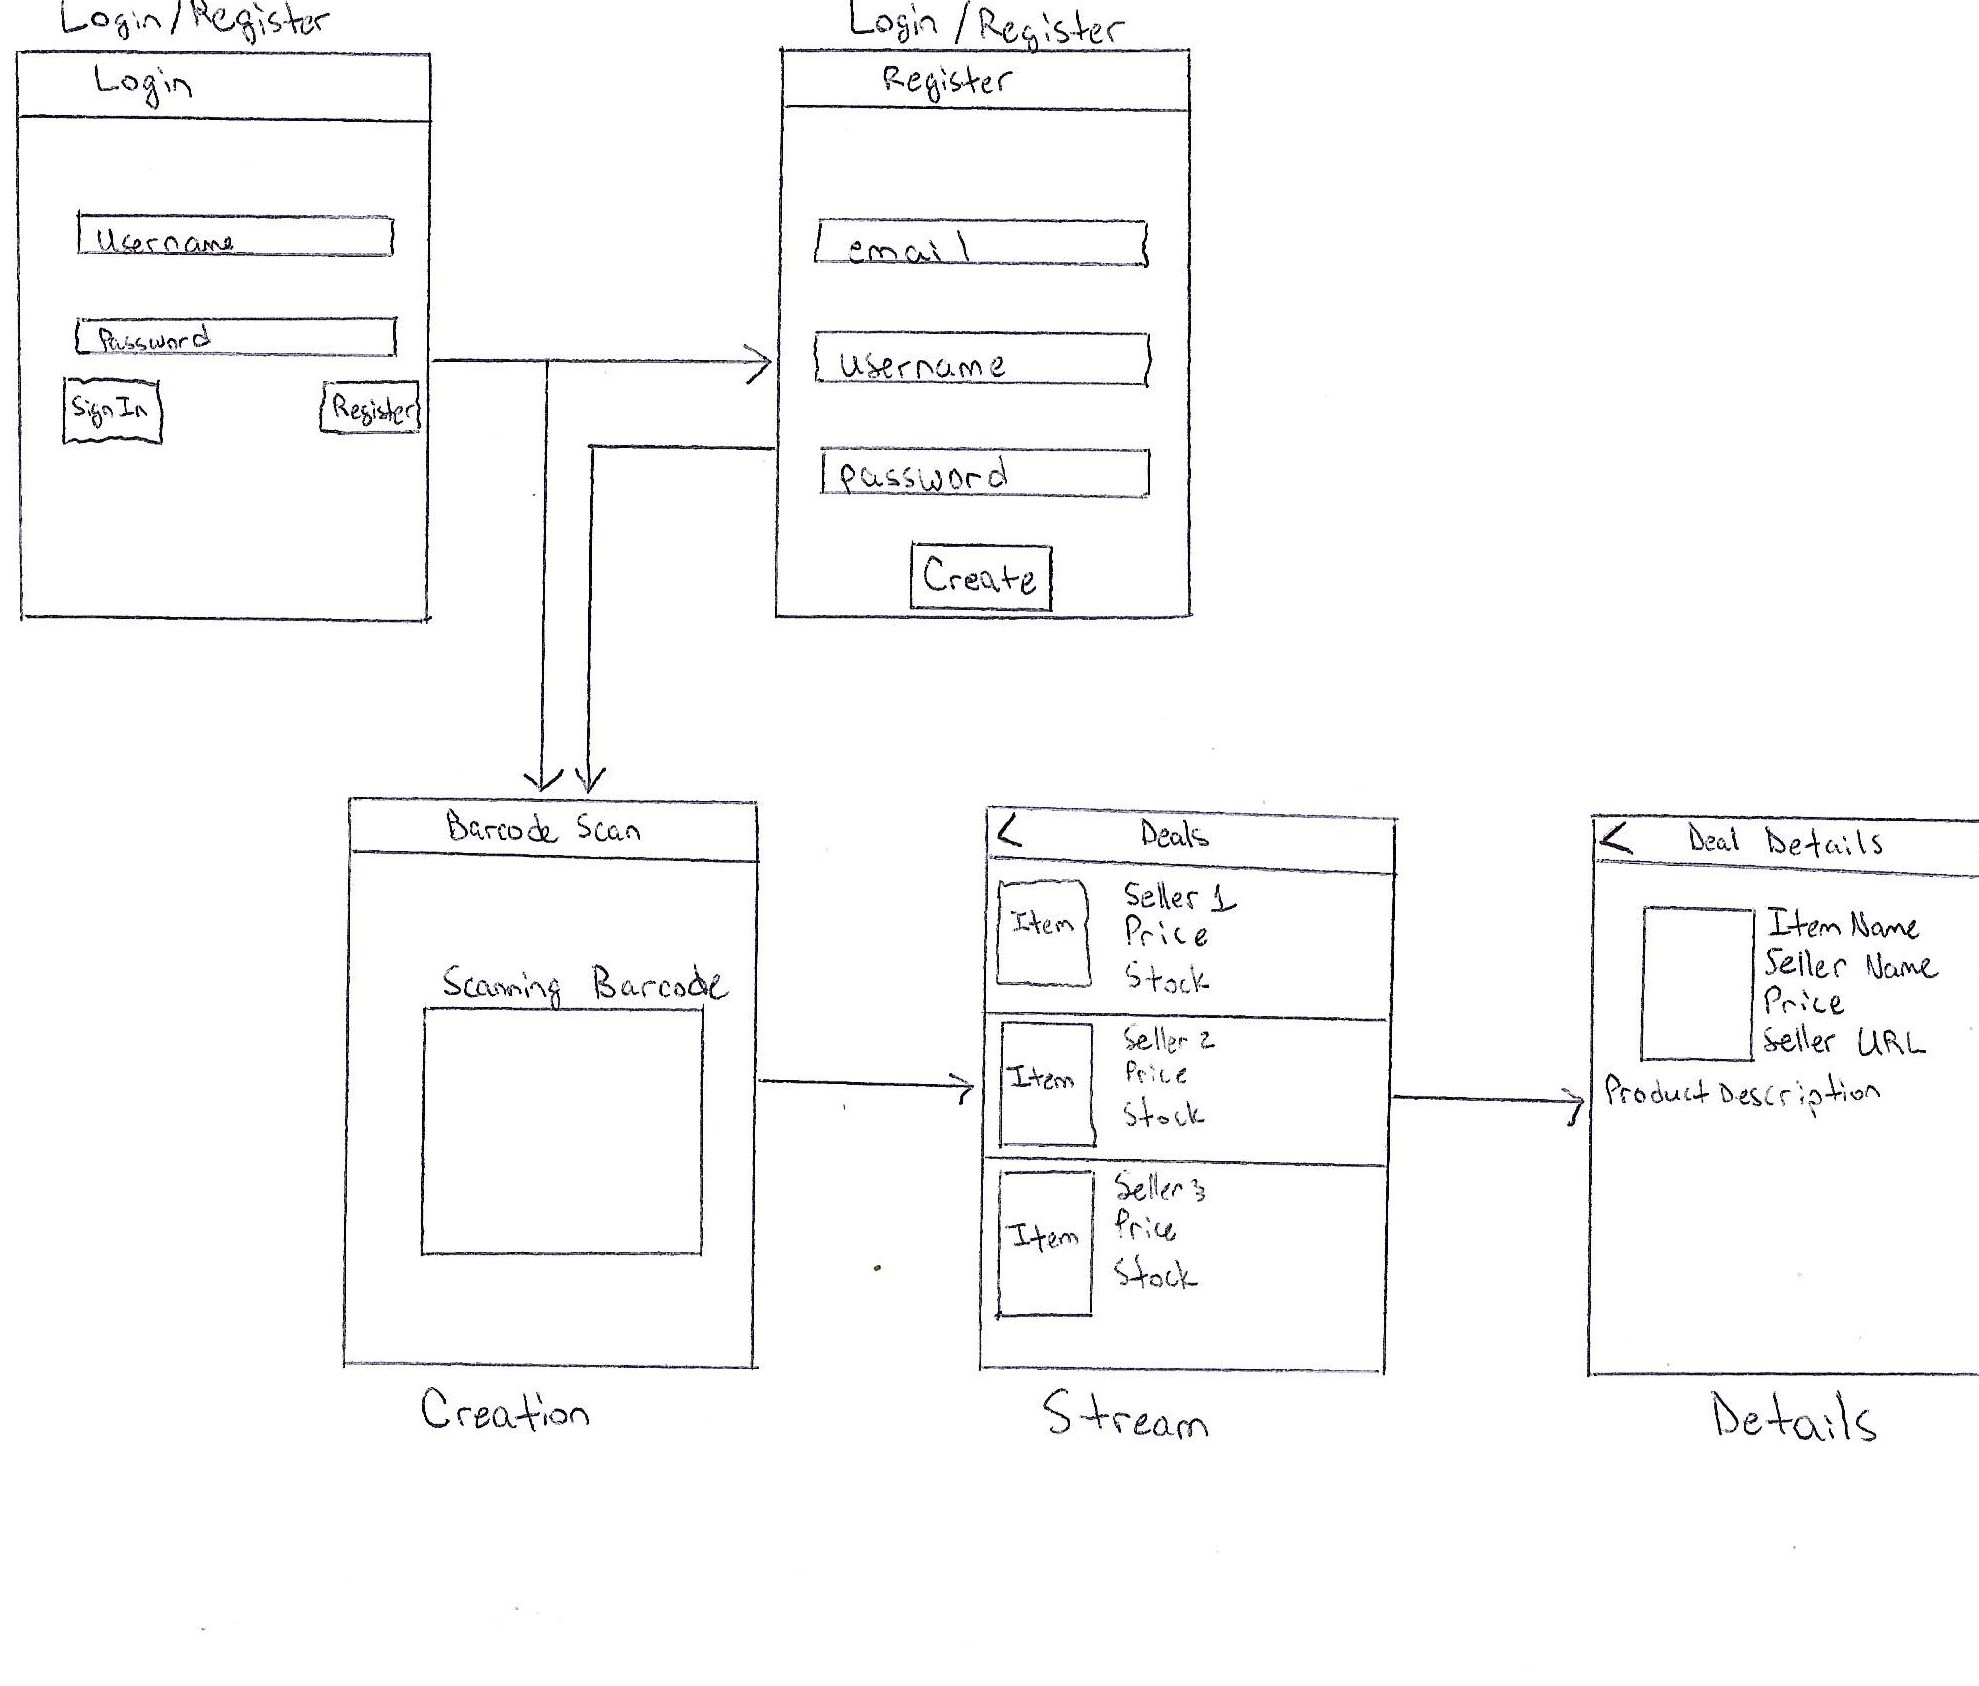 Login/Register
Login
Username
Password
Sign In
Register
Login/Register
Register
email
username
password
Create
Barcode Scan
Scanning Barcode
Creation
<
Deals
Item
Seller 1
Price
Stock
Item
Seller 2
Price
Stock
Item
Seller 3
Price
Stock
Stream
<
Deal Details
Item Name
Seller Name
Price
Seller URL
Product Description
Details